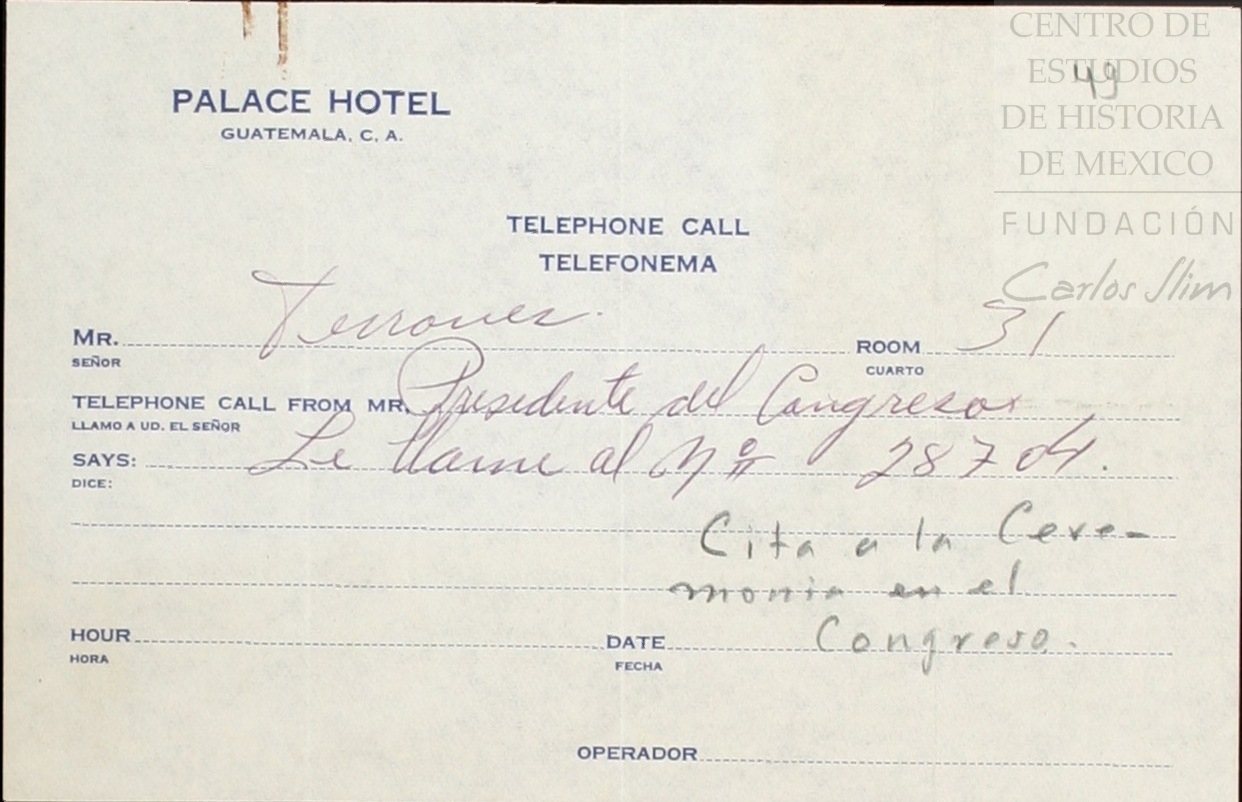 CENTRO DE
ESTUDIOS
49
DE HISTORIA
DE MEXICO
FUNDACIÓN
Carlos Slim
PALACE HOTEL
GUATEMALA, C. A.
TELEPHONE CALL
TELEFONEMA
MR. Terrones. ROOM 31
SEÑOR CUARTO
TELEPHONE CALL FROM MR. Presidente del Congreso
LLAMO A UD. EL SEÑOR
SAYS: Le llame al Nº 28704.
DICE:
Cita a la Cere-
monia en el
HOUR DATE Congreso.
HORA FECHA
OPERADOR